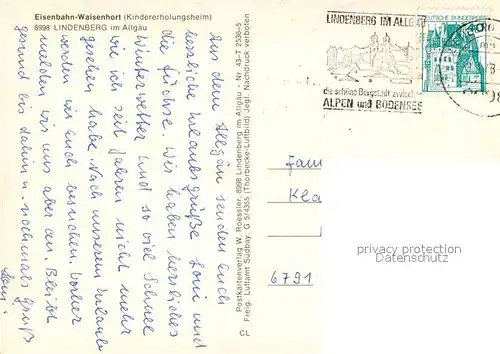 Eisenbahn-Waisenhort (Kindererholungsheim)
8998 LINDENBERG im Allgäu
Aus dem Allgäu senden Euch
herzliche Urlaubsgrüße Loni und
die Füchse. Wir haben herrliches
Winterwetter und so viel Schnee
wie ich seit Jahren nicht mehr
gesehen habe. Nach unserem Urlaub
werden wir Euch besuchen. Vorher
melden wir uns aber an. Bleibt
gesund bis dahin u. nochmals Gruß
Loni.
Postkartenverlag W. Roessler, 8998 Lindenberg im Allgäu - Nr. 43-T 2536-5
Freig. Luftamt Südbay. G 5/4355 (Thorbecke-Luftbild) Jegl. Nachdruck verboten
CL
LINDENBERG IM ALLG
die schöne Bergstadt zwisch
ALPEN und BODENSEE
DEUTSCHE BUNDESPOST
Fam
Kla
6791
privacy protection
www.oldthing.de